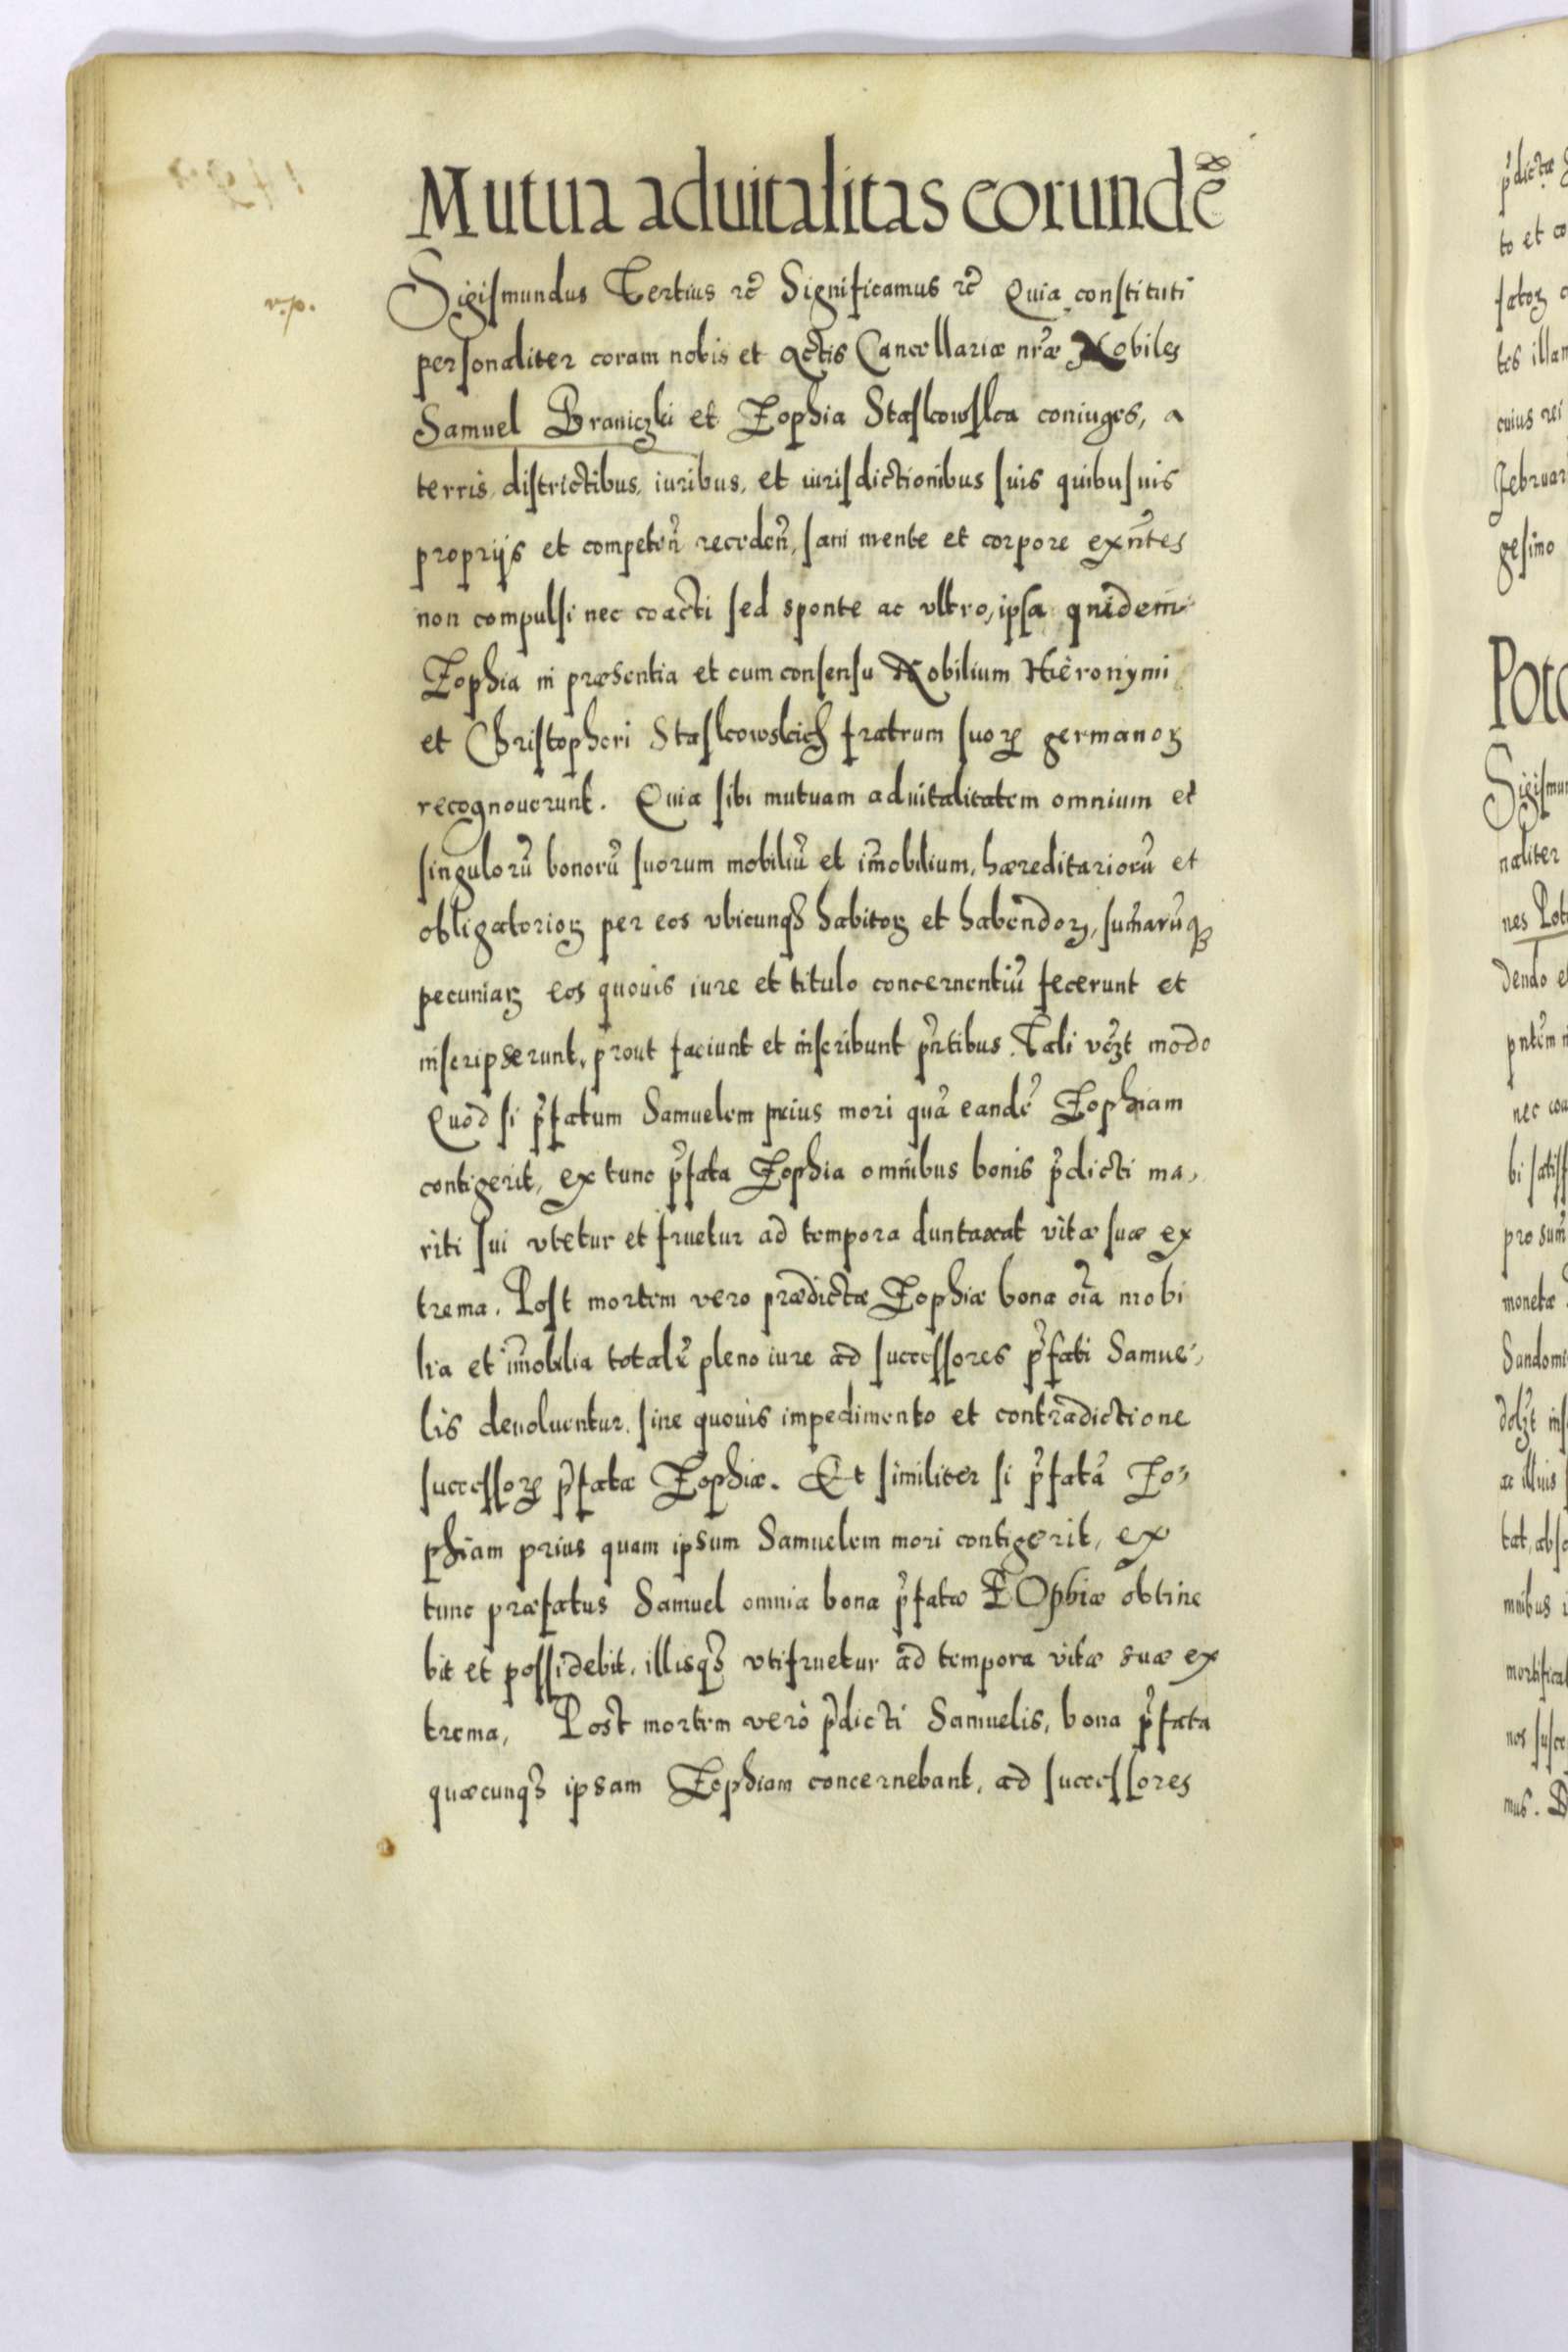 Mutua aduitalitas eorundē
Sigismundus Tertius ꝛc̃ Significamus ꝛc̃ Quia constituti
personaliter coram nobis et actis Cancellariæ nr̃æ Nobiles
Samuel Braniczki et Zophia Staskowska coniuges, a
terris, districtibus, iuribus, et iurisdictionibus suis quibusuis
proprijs et competeñ recedeñ, sani mente et corpore exñtes
non compulsi nec coacti sed sponte ac vltro, ipsa quidem
Zophia in præsentia et cum consensu Nobilium Hieronymi
et Christopheri Staskowskich fratrum suoꝝ germanoꝝ
recognouerunt. Quia sibi mutuam aduitalitatem omnium et
singulorũ bonorũ suorum mobiliũ et im̃obilium, hæreditariorũ et
obligatorioꝝ per eos vbicunqꝫ habitoꝝ et habendoꝝ, sum̃arũqꝫ
pecuniaꝝ eos quouis iure et titulo concernentiũ fecerunt et
inscripserunt, prout faciunt et inscribunt pñtibus. Tali vc̃ꝫt modo
Quod si p̃fatum Samuelem prius mori quã eandẽ Zophiam
contigerit, ex tunc p̃fata Zophia omnibus bonis p̃dicti ma,
riti sui vtetur et fruetur ad tempora duntaxat vitæ suæ ex
trema. Post mortem vero prædictæ Zophiæ bona oĩa mobi
lia et im̃obilia totalr̃ pleno iure ad successores p̃fati Samue,
lis deuoluentur, sine quouis impedimento et contradictione
successoꝝ p̃fatæ Zophiæ. Et similiter si p̃fatã Zo,
phiam prius quam ipsum Samuelem mori contigerit, ex
tunc præfatus Samuel omnia bona p̃fatæ ZOphiæ obtine
bit et possidebit, illisqꝫ vtifruetur ad tempora vitæ suæ ex
trema, Post mortem verò p̃dicti Samuelis, bona p̃fata
quæcunqꝫ ipsam Zophiam concernebant, ad successores